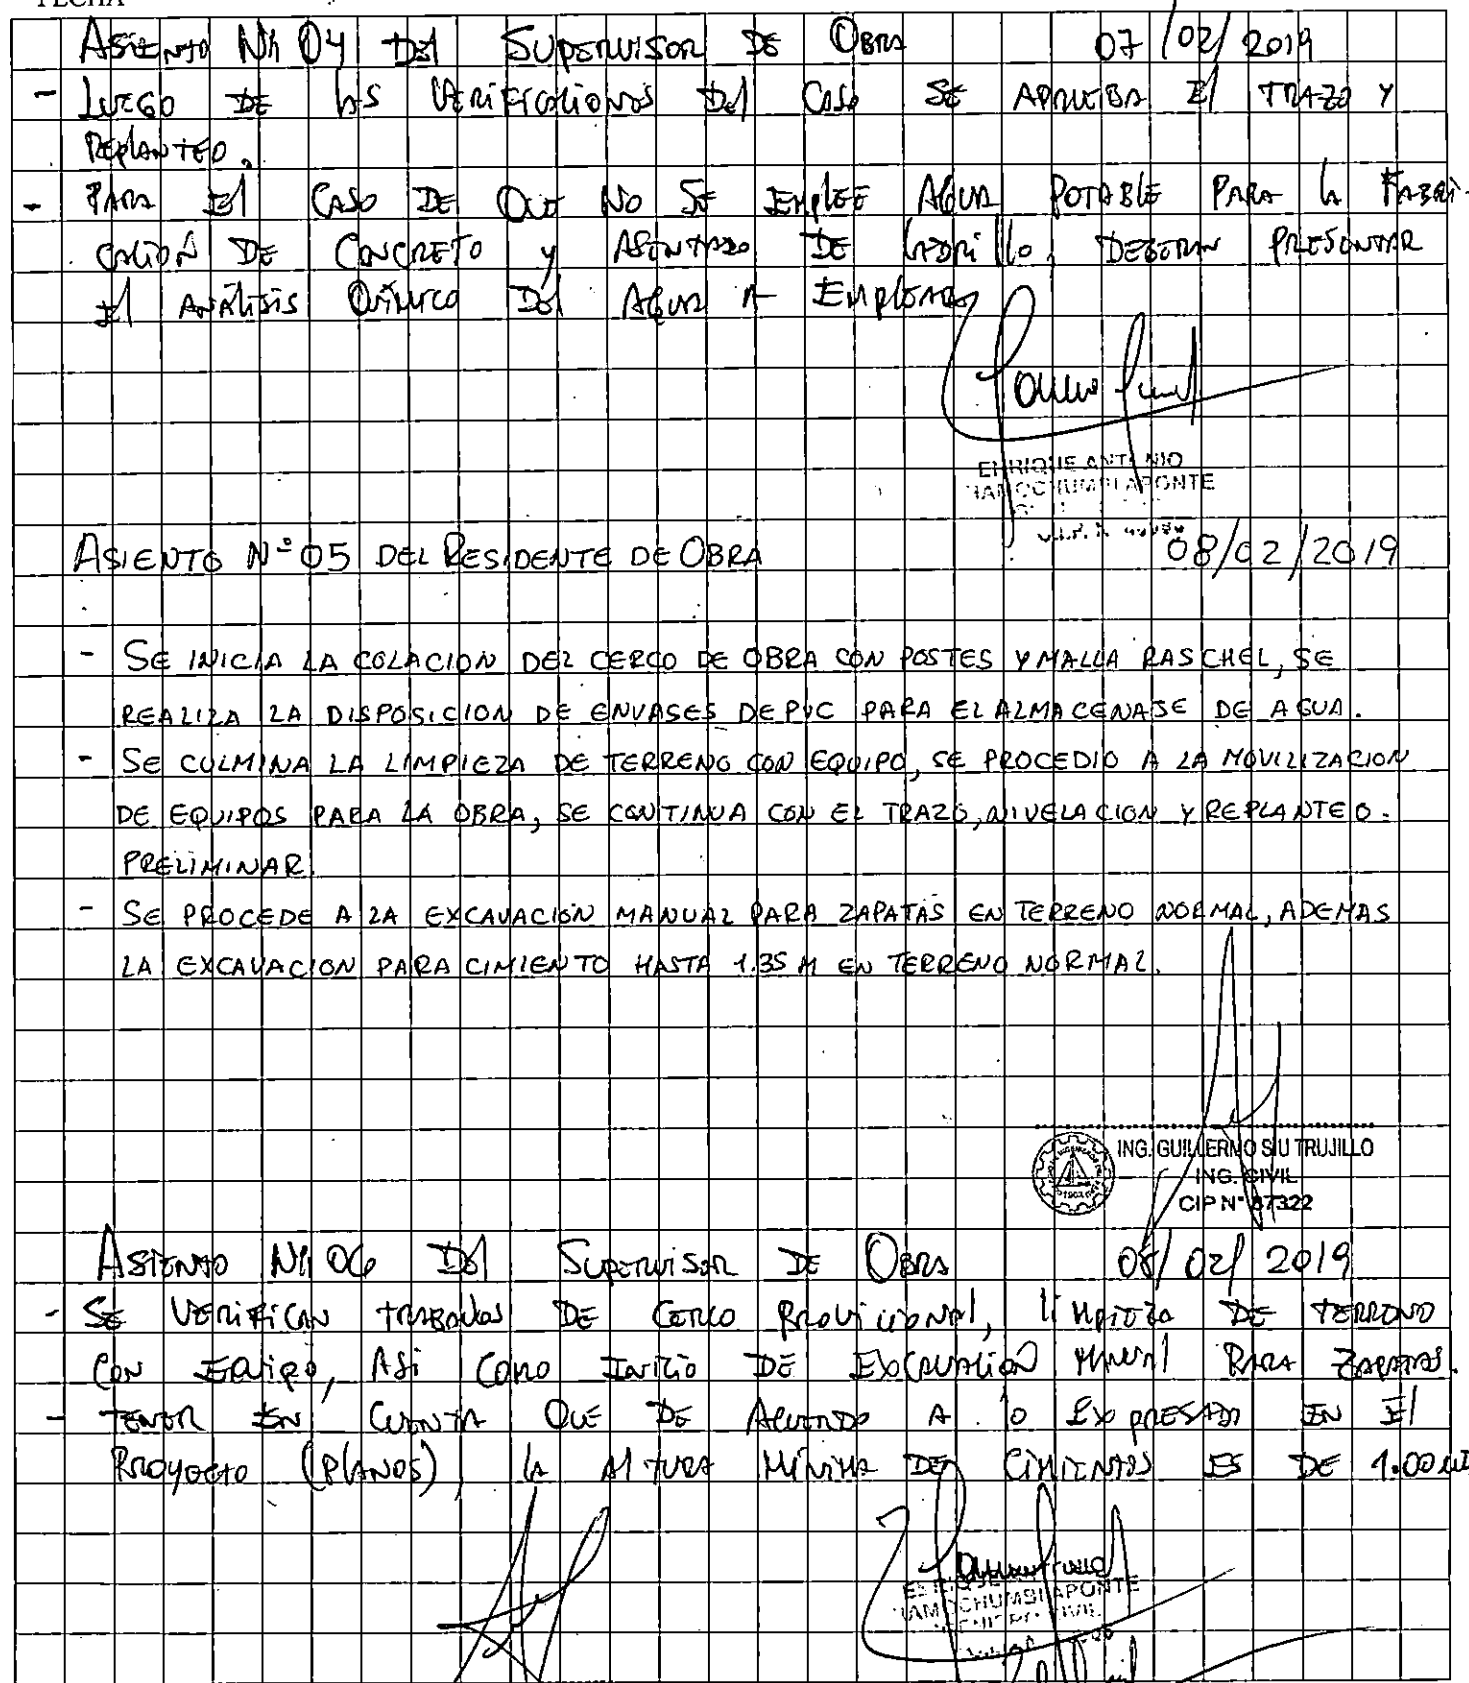 FECHA
ASIENTO Nº 04 DEL SUPERVISOR DE OBRA 07/02/2019
- LUEGO DE LAS VERIFICACIONES DEL CASO SE APRUEBA EL TRAZO Y
REPLANTEO.
- PARA EL CASO DE QUE NO SE EMPLEE AGUA POTABLE PARA LA FABRI-
CACIÓN DE CONCRETO Y ASENTADO DE LADRILLO, DEBERAN PRESENTAR
EL ANÁLISIS QUÍMICO DEL AGUA A EMPLEAR
ENRIQUE ANTONIO
ÑAMOCHUMBI APONTE
ASIENTO Nº 05 DEL RESIDENTE DE OBRA 08/02/2019
- SE INICIA LA COLACION DEL CERCO DE OBRA CON POSTES Y MALLA RASCHEL, SE
REALIZA LA DISPOSICION DE ENVASES DE PVC PARA EL ALMACENAJE DE AGUA.
- SE CULMINA LA LIMPIEZA DE TERRENO CON EQUIPO, SE PROCEDIO A LA MOVILIZACION
DE EQUIPOS PARA LA OBRA, SE CONTINUA CON EL TRAZO, NIVELACION Y REPLANTEO.
PRELIMINAR.
- SE PROCEDE A LA EXCAVACIÓN MANUAL PARA ZAPATAS EN TERRENO NORMAL, ADEMAS
LA EXCAVACION PARA CIMIENTO HASTA 1.35 M EN TERRENO NORMAL.
ING. GUILLERMO SIU TRUJILLO
ING. CIVIL
CIP N° 87322
ASIENTO Nº 06 DEL SUPERVISOR DE OBRA 08/02/2019
- SE VERIFICAN TRABAJOS DE CERCO PROVICIONAL, LIMPIEZA DE TERRENO
CON EQUIPO, ASI COMO INICIO DE EXCAVACIÓN MANUAL PARA ZAPATAS.
- TENER EN CUENTA QUE DE ACUERDO A LO EXPRESADO EN EL
PROYECTO (PLANOS), LA ALTURA MÍNIMA DE CIMIENTOS ES DE 1.00 MT
ÑAMOCHUMBI APONTE
INGENIERO CIVIL